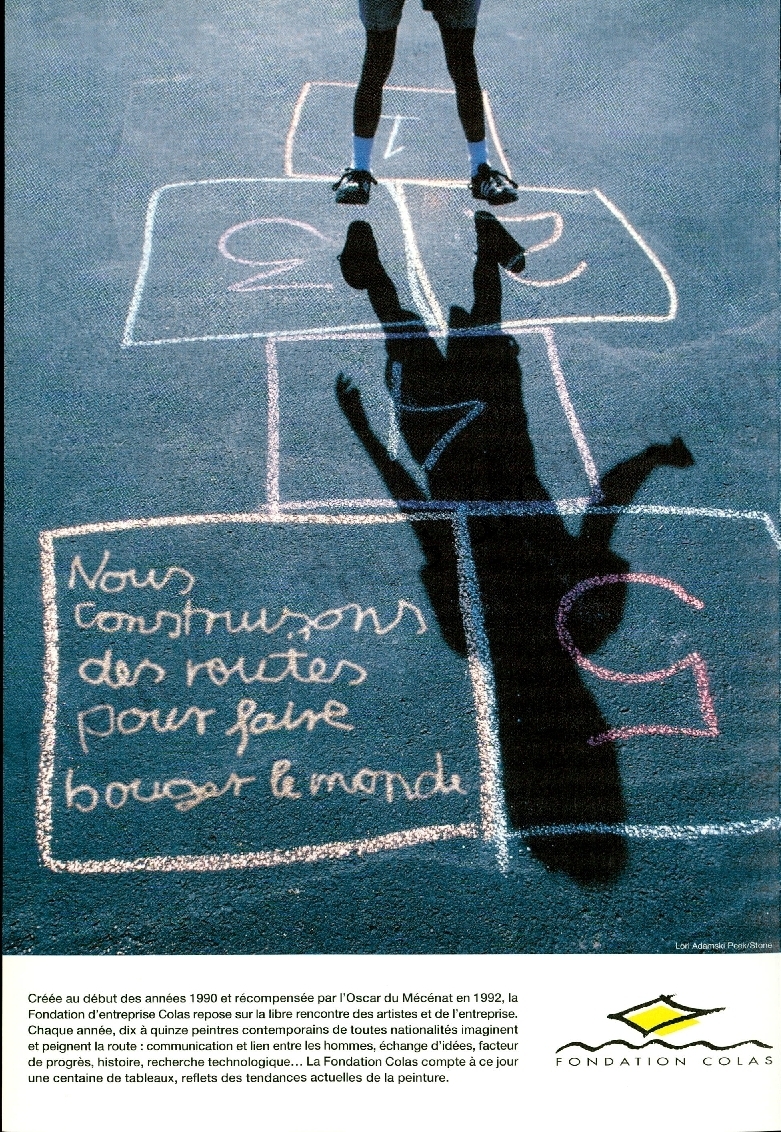 1
3 2
4
Nous
construisons
des routes
pour faire
bouger le monde
5
Lori Adamski Peek/Stone
Créée au début des années 1990 et récompensée par l'Oscar du Mécénat en 1992, la
Fondation d'entreprise Colas repose sur la libre rencontre des artistes et de l'entreprise.
Chaque année, dix à quinze peintres contemporains de toutes nationalités imaginent
et peignent la route : communication et lien entre les hommes, échange d'idées, facteur
de progrès, histoire, recherche technologique... La Fondation Colas compte à ce jour
une centaine de tableaux, reflets des tendances actuelles de la peinture.
FONDATION COLAS